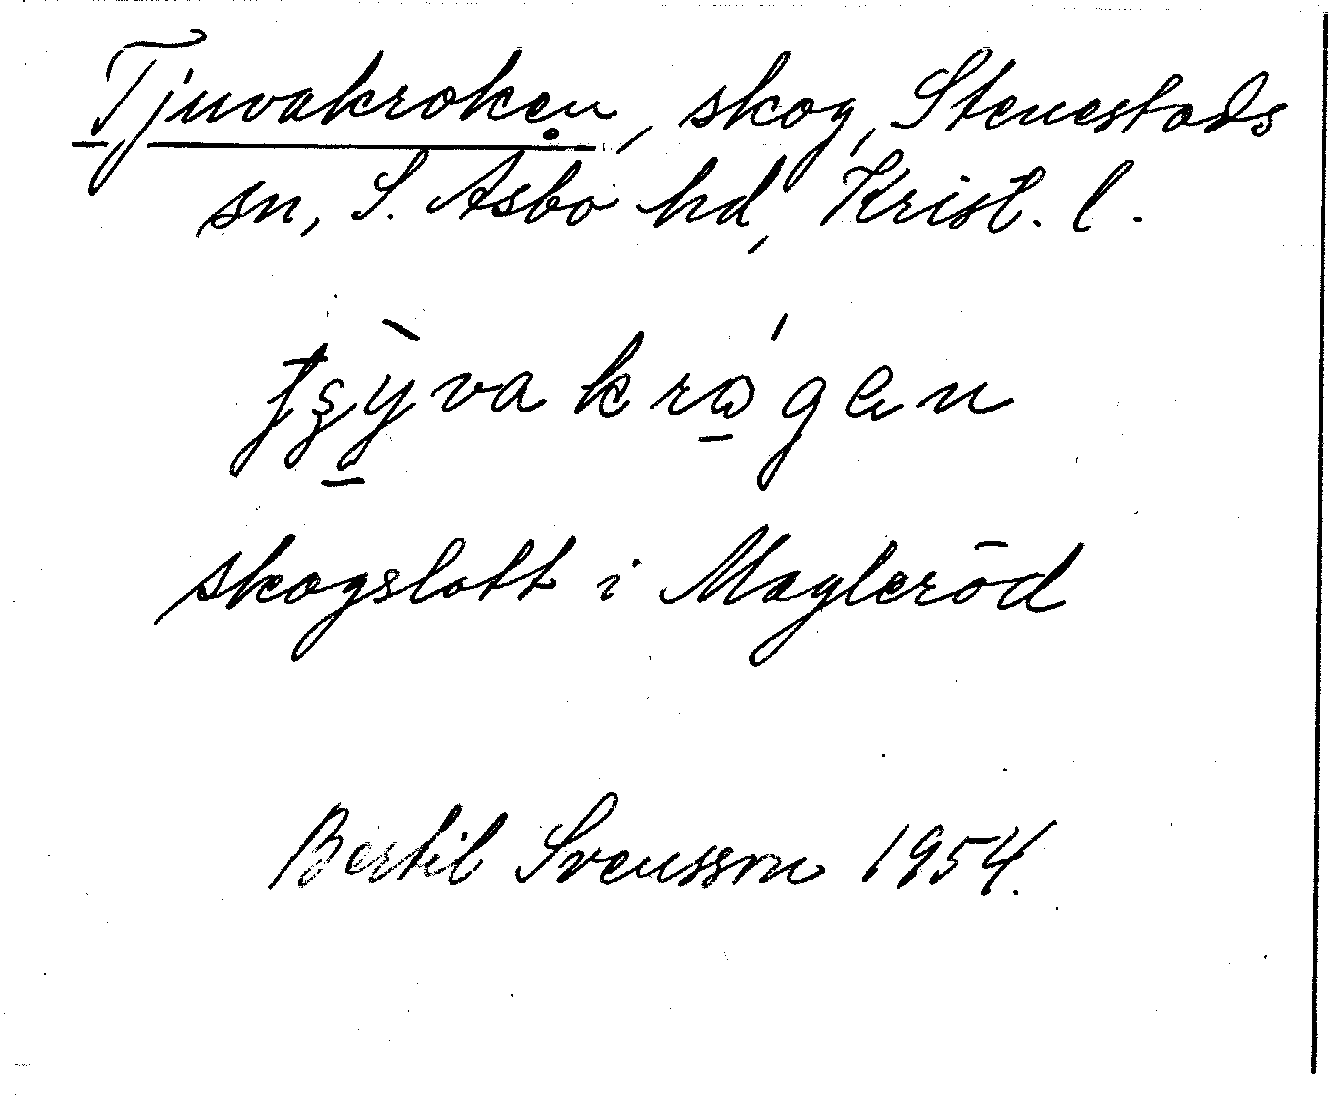 Tjuvakroken, skog, Stenestads
sn, S. Asbo hd, Krist. l.
skogslott i Magleröd
Bertil Svensson 1954.